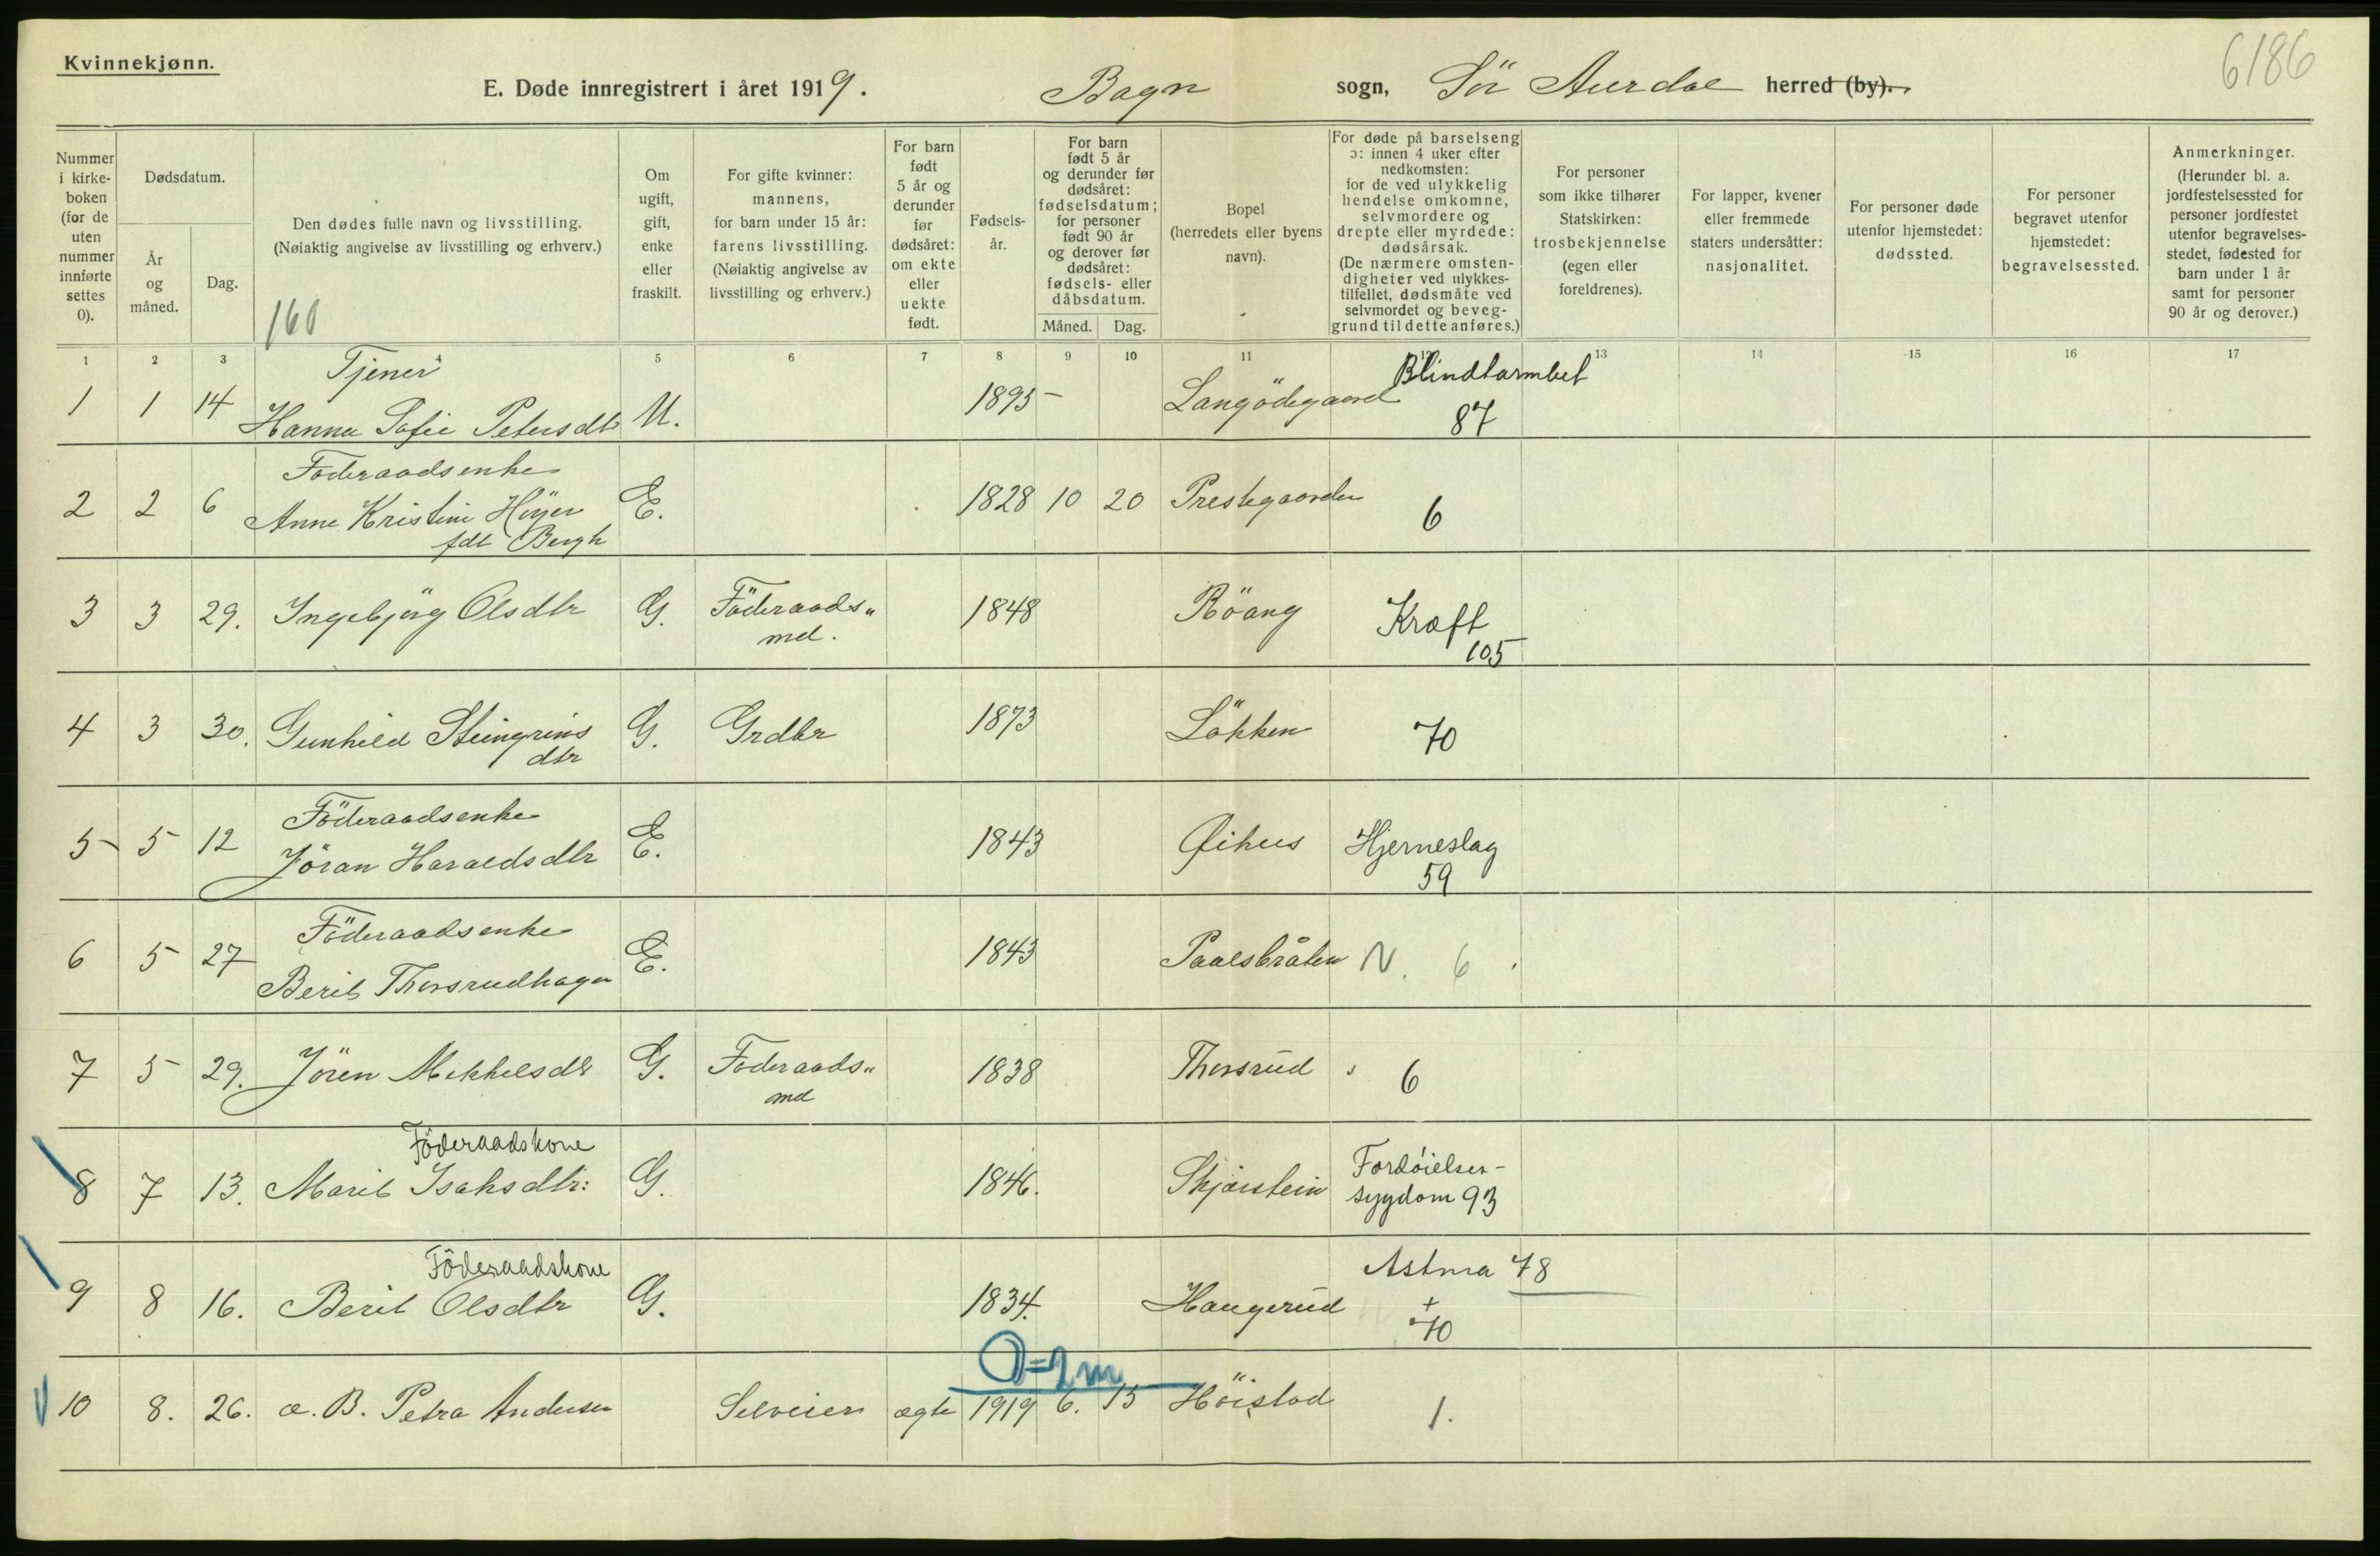 Kvinnekjønn.
6186
E. Døde innregistrert i året 1919. Bagn sogn, Sör Aurdal herred (by).
Nummer i kirke-boken (for de uten nummer innførte settes 0).
Dødsdatum.
År og måned.
Dag.
Den dødes fulle navn og livsstilling.
(Nøiaktig angivelse av livsstilling og erhverv.)
160
Om ugift, gift, enke eller fraskilt.
For gifte kvinner: mannens, for barn under 15 år: farens livsstilling. (Nøiaktig angivelse av livsstilling og erhverv.)
For barn født 5 år og derunder før dødsåret: om ekte eller uekte født.
Fødsels-år.
For barn født 5 år og derunder før dødsåret: fødselsdatum; for personer født 90 år og derover før dødsåret: fødsels- eller dåbsdatum.
Måned. Dag.
Bopel (herredets eller byens navn).
For døde på barselseng ɔ: innen 4 uker efter nedkomsten: for de ved ulykkelig hendelse omkomne, selvmordere og drepte eller myrdede: dødsårsak. (De nærmere omsten-digheter ved ulykkes-tilfellet, dødsmåte ved selvmordet og beveg-grund til dette anføres.)
For personer som ikke tilhører Statskirken: trosbekjennelse (egen eller foreldrenes).
For lapper, kvener eller fremmede staters undersåtter: nasjonalitet.
For personer døde utenfor hjemstedet: dødssted.
For personer begravet utenfor hjemstedet: begravelsessted.
Anmerkninger. (Herunder bl. a. jordfestelsessted for personer jordfestet utenfor begravelses-stedet, fødested for barn under 1 år samt for personer 90 år og derover.)
1 2 3 4 5 6 7 8 9 10 11 12 13 14 15 16 17
Tjener Blindtarmbet
1 1 14 Hanna Sofie Petersdtr U. 1895 Langödegaard 87
Föderaadsenke
2 2 6 Anne Kristine Höyer E. 1828 10 20 Prestegaarden 6
fdt Bergh
3 3 29. Ingebjörg Olsdtr G. Föderaads„ 1848 Röang Kræft
md. 105
4 3 30. Gunhild Steingrims G. Grdbr 1873 Lökken 70
dtr
Föderaadsenke
5 5 12 Jöran Haraldsdtr E. 1843 Øihus Hjerneslag
59
Föderaadsenke
6 5 27 Berit Thorsrudhagen E. 1843 Paalsbråten N. 6
7 5 29. Jören Mikkelsdtr G. Föderaads„ 1838 Thorsrud 6
md
Föderaadskone
8 7 13. Marit Isaksdtr: G. 1846. Skjærstein Fordøielses-
sygdom 93
Föderaadskone Astma 78
9 8 16. Berit Olsdtr G. 1834. Haugerud +
70
0=2m
10 8. 26. a. B. Petra Andersen Selveier ægte 1919 6. 15 Höistad 1.